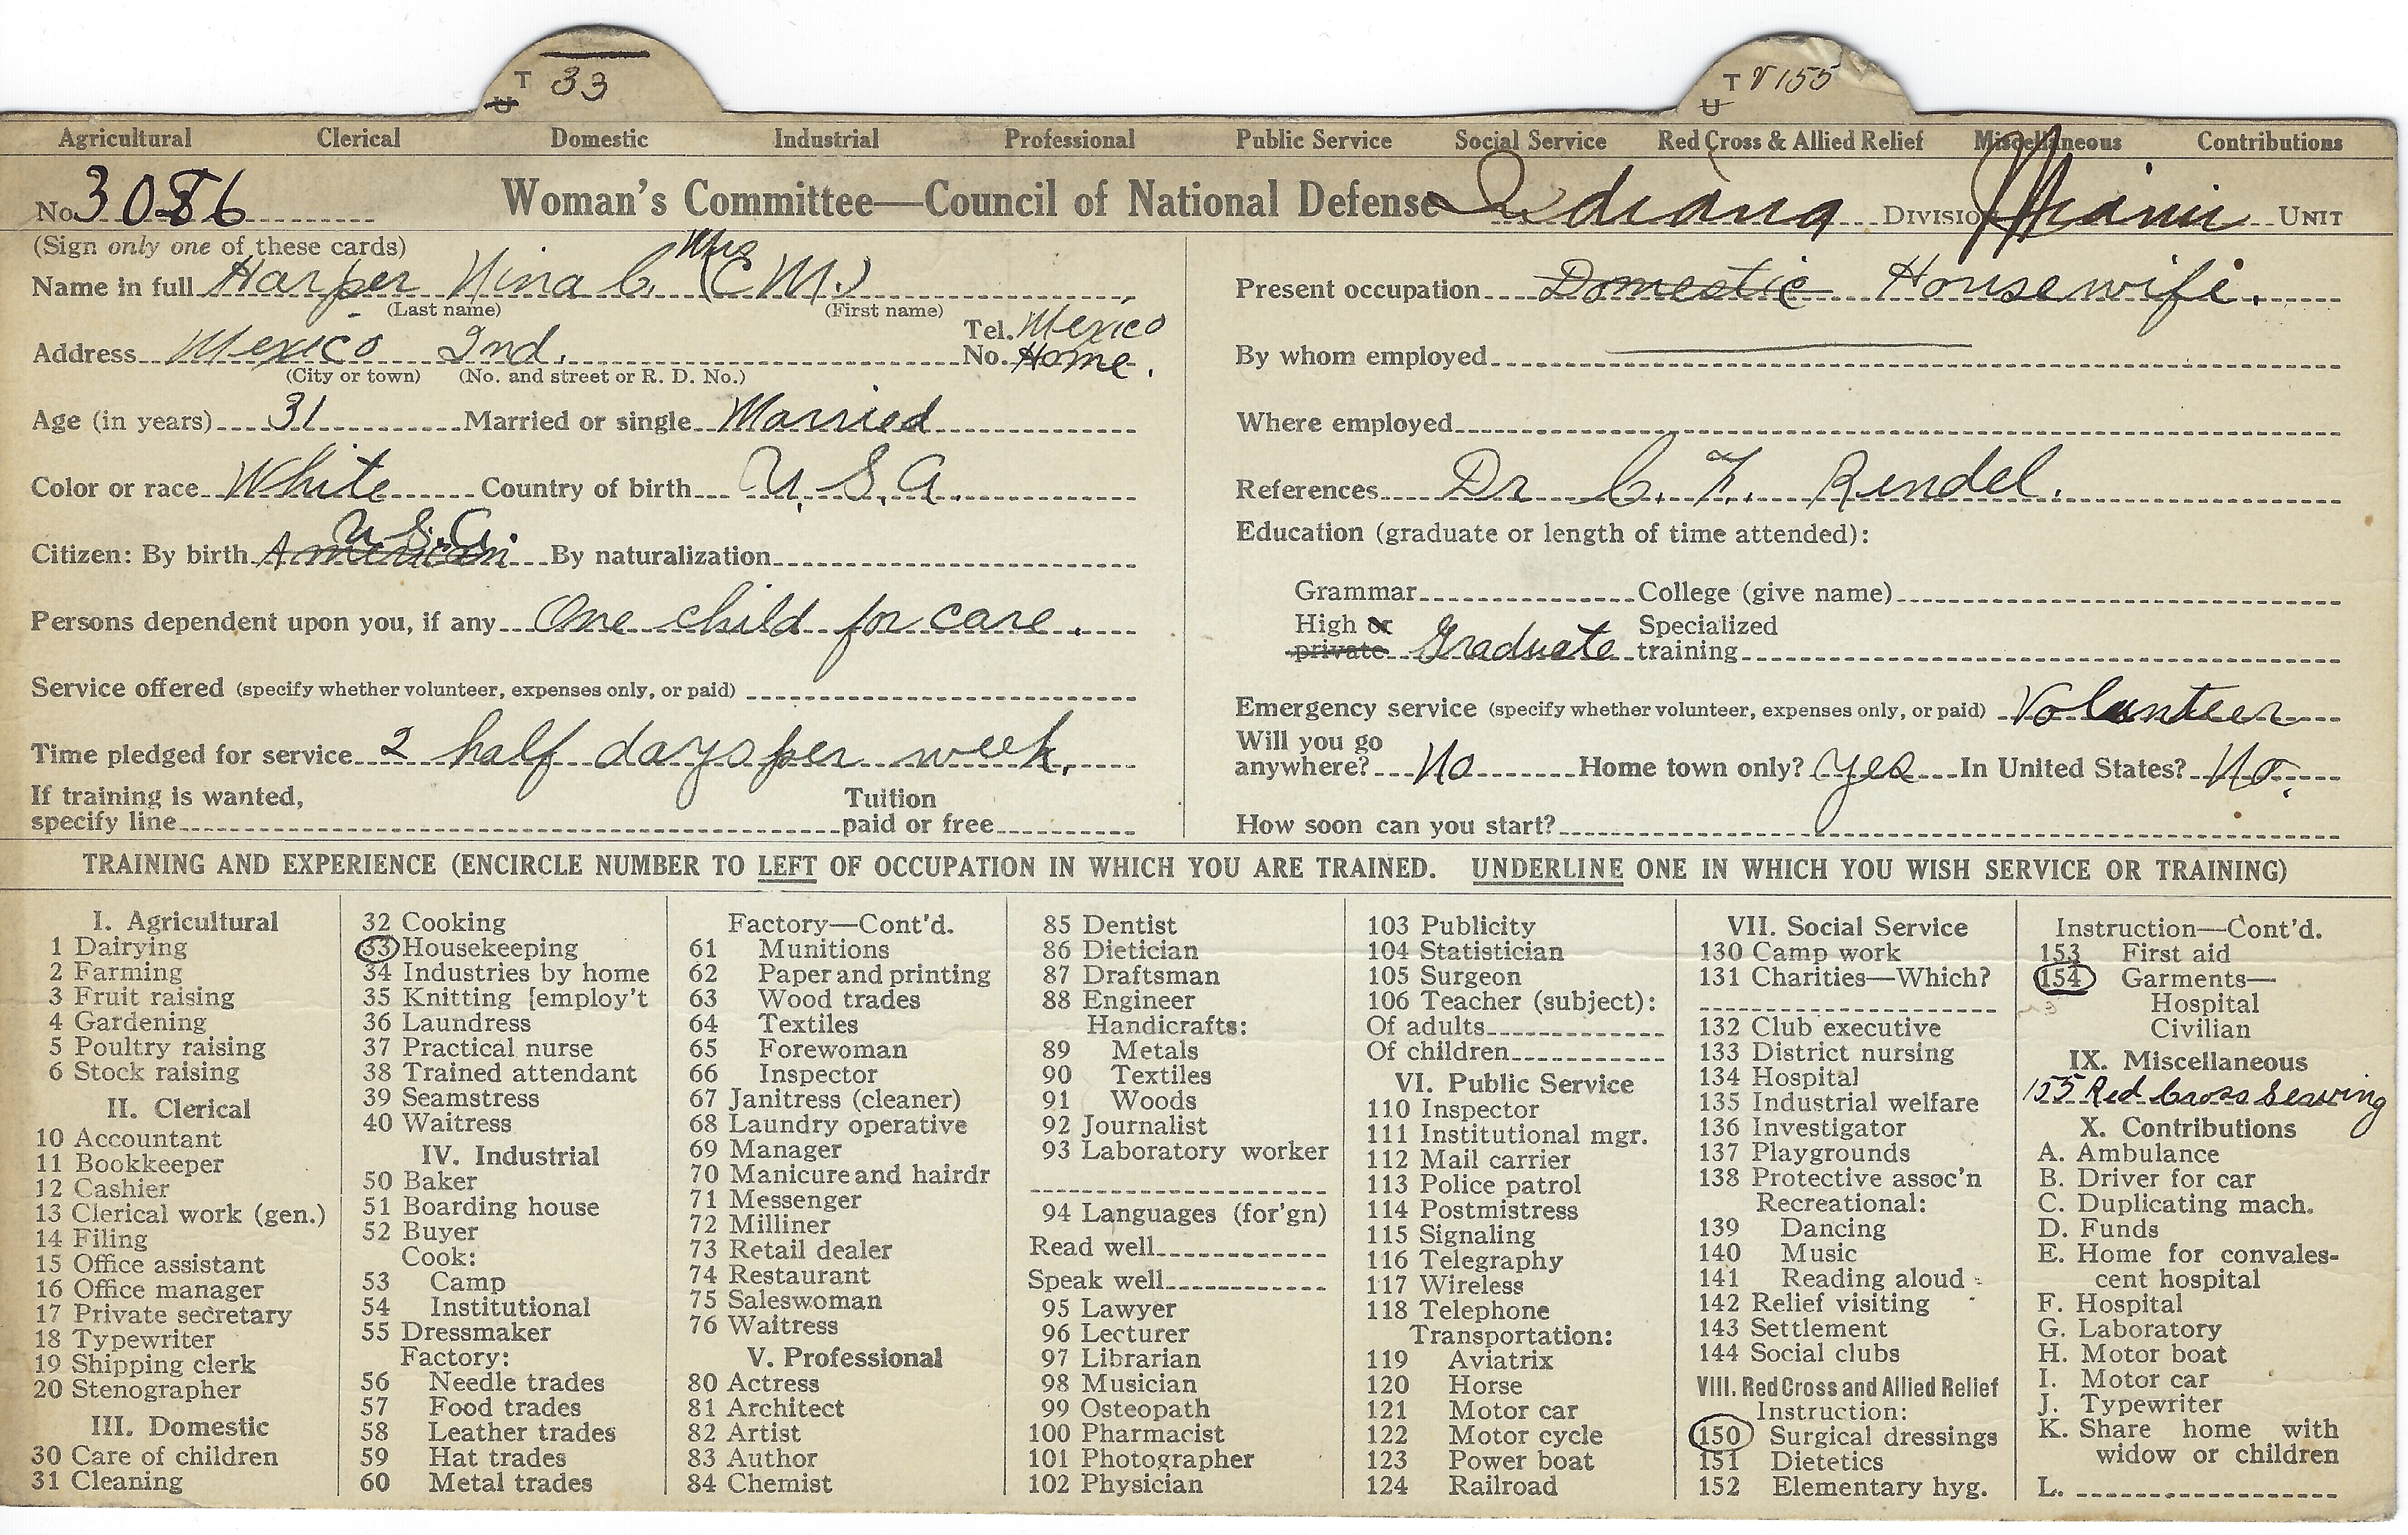 T 33
U
T V 155
U
Agricultural Clerical Domestic Industrial Professional Public Service Social Service Red Cross & Allied Relief Miscellaneous Contributions
No. 3086 Woman's Committee—Council of National Defense Indiana DIVISION Miami UNIT
(Sign only one of these cards)
Name in full Harper Nina C. Mrs (C M.)
(Last name) (First name)
Address Mexico Ind. Tel. No. Mexico Home.
(City or town) (No. and street or R. D. No.)
Age (in years) 31 Married or single Married
Color or race White Country of birth U. S. A.
Citizen: By birth American U. S. A. By naturalization
Persons dependent upon you, if any One child for care.
Service offered (specify whether volunteer, expenses only, or paid)
Time pledged for service 2 half days per week.
If training is wanted, specify line Tuition paid or free
Present occupation Domestic Housewife.
By whom employed
Where employed
References Dr C. F. Rendel.
Education (graduate or length of time attended):
Grammar College (give name)
High or private Graduate Specialized training
Emergency service (specify whether volunteer, expenses only, or paid) Volunteer
Will you go anywhere? No Home town only? Yes In United States? No.
How soon can you start?
TRAINING AND EXPERIENCE (ENCIRCLE NUMBER TO LEFT OF OCCUPATION IN WHICH YOU ARE TRAINED. UNDERLINE ONE IN WHICH YOU WISH SERVICE OR TRAINING)
I. Agricultural
1 Dairying
2 Farming
3 Fruit raising
4 Gardening
5 Poultry raising
6 Stock raising
II. Clerical
10 Accountant
11 Bookkeeper
12 Cashier
13 Clerical work (gen.)
14 Filing
15 Office assistant
16 Office manager
17 Private secretary
18 Typewriter
19 Shipping clerk
20 Stenographer
III. Domestic
30 Care of children
31 Cleaning
32 Cooking
33 Housekeeping
34 Industries by home
35 Knitting [employ't
36 Laundress
37 Practical nurse
38 Trained attendant
39 Seamstress
40 Waitress
IV. Industrial
50 Baker
51 Boarding house
52 Buyer
Cook:
53 Camp
54 Institutional
55 Dressmaker
Factory:
56 Needle trades
57 Food trades
58 Leather trades
59 Hat trades
60 Metal trades
Factory—Cont'd.
61 Munitions
62 Paper and printing
63 Wood trades
64 Textiles
65 Forewoman
66 Inspector
67 Janitress (cleaner)
68 Laundry operative
69 Manager
70 Manicure and hairdr
71 Messenger
72 Milliner
73 Retail dealer
74 Restaurant
75 Saleswoman
76 Waitress
V. Professional
80 Actress
81 Architect
82 Artist
83 Author
84 Chemist
85 Dentist
86 Dietician
87 Draftsman
88 Engineer
Handicrafts:
89 Metals
90 Textiles
91 Woods
92 Journalist
93 Laboratory worker
94 Languages (for'gn)
Read well
Speak well
95 Lawyer
96 Lecturer
97 Librarian
98 Musician
99 Osteopath
100 Pharmacist
101 Photographer
102 Physician
103 Publicity
104 Statistician
105 Surgeon
106 Teacher (subject):
Of adults
Of children
VI. Public Service
110 Inspector
111 Institutional mgr.
112 Mail carrier
113 Police patrol
114 Postmistress
115 Signaling
116 Telegraphy
117 Wireless
118 Telephone
Transportation:
119 Aviatrix
120 Horse
121 Motor car
122 Motor cycle
123 Power boat
124 Railroad
VII. Social Service
130 Camp work
131 Charities—Which?
132 Club executive
133 District nursing
134 Hospital
135 Industrial welfare
136 Investigator
137 Playgrounds
138 Protective assoc'n
Recreational:
139 Dancing
140 Music
141 Reading aloud
142 Relief visiting
143 Settlement
144 Social clubs
VIII. Red Cross and Allied Relief
Instruction:
150 Surgical dressings
151 Dietetics
152 Elementary hyg.
Instruction—Cont'd.
153 First aid
154 Garments—
Hospital
Civilian
IX. Miscellaneous
155 Red Cross Sewing
X. Contributions
A. Ambulance
B. Driver for car
C. Duplicating mach.
D. Funds
E. Home for convales-
cent hospital
F. Hospital
G. Laboratory
H. Motor boat
I. Motor car
J. Typewriter
K. Share home with
widow or children
L.